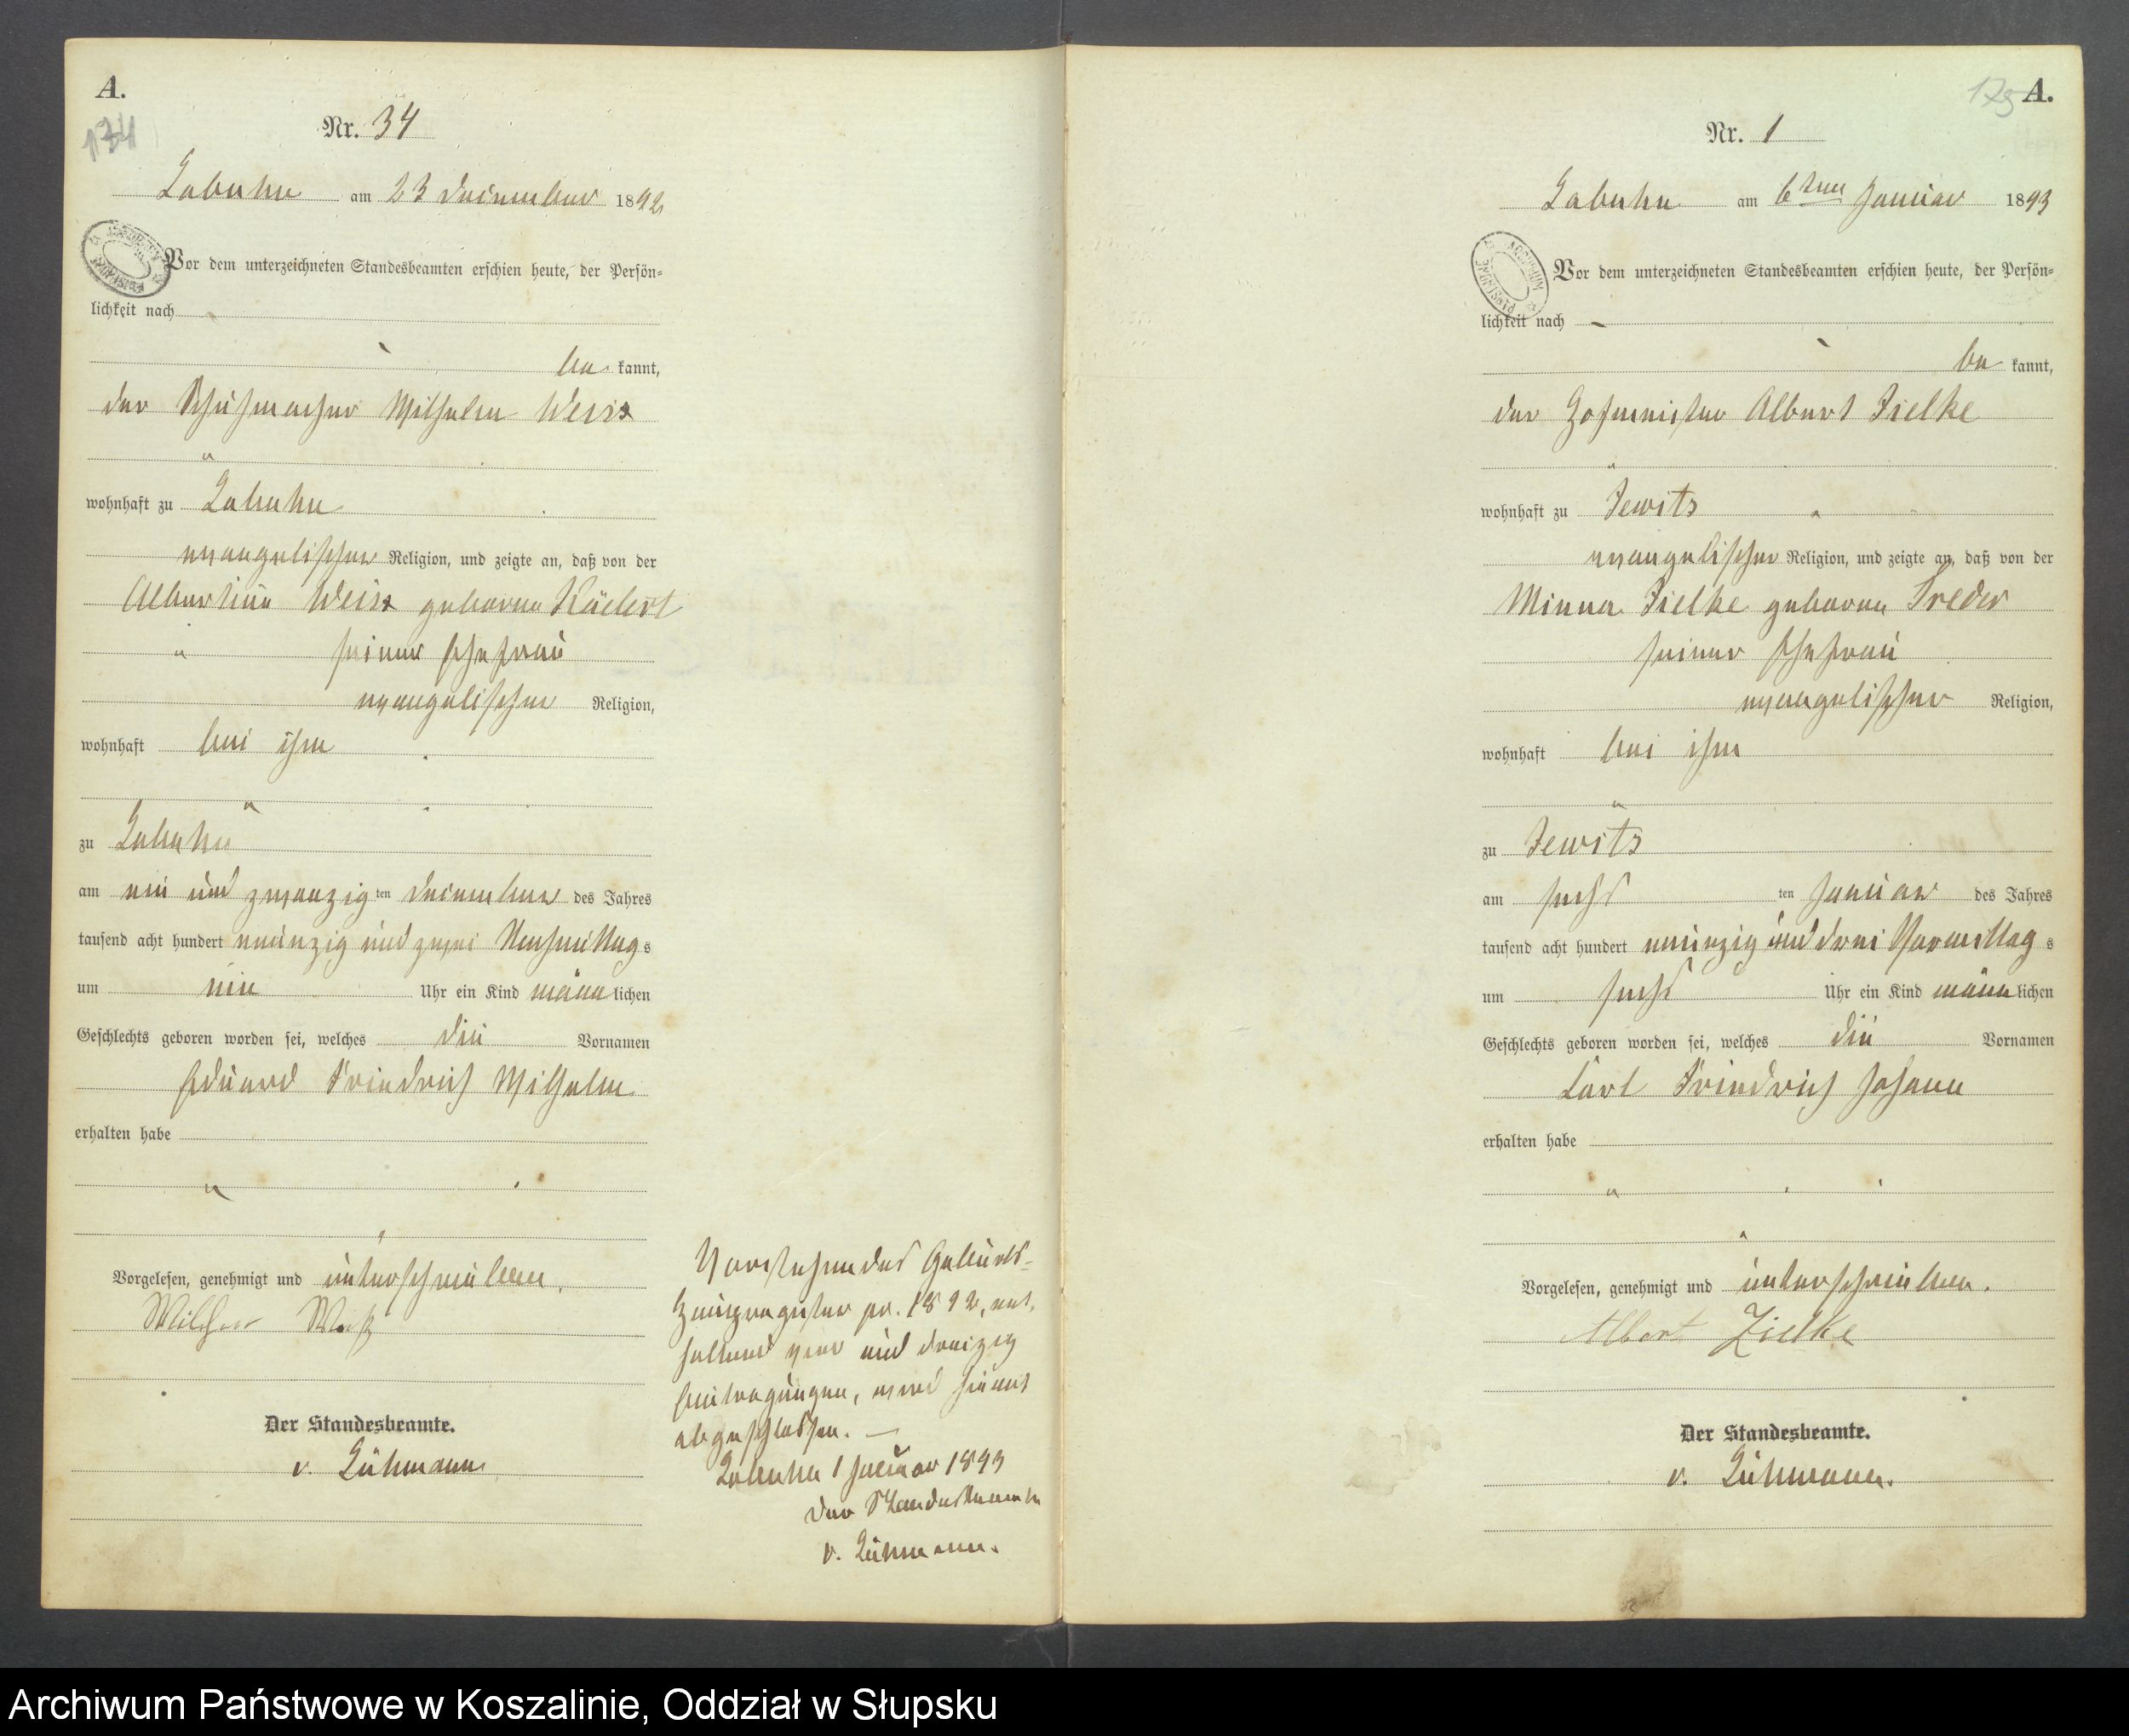 A.
134
Nr. 34
Labuhn am 23 Dezember 1892
Vor dem unterzeichneten Standesbeamten erschien heute, der Persön=
lichkeit nach
be kannt,
der Schuhmacher Wilhelm Weiss
wohnhaft zu Labuhn
evangelischer Religion, und zeigte an, daß von der
Albertine Weiss geborne
seiner Ehefrau
evangelischer Religion,
wohnhaft bei ihm
zu Labuhn
am ein und zwanzig ten Dezember des Jahres
tausend acht hundert neunzig und zwei Nachmittag s
um ein Uhr ein Kind männ lichen
Geschlechts geboren worden sei, welches die Vornamen
Eduard Friedrich Wilhelm
erhalten habe
Vorgelesen, genehmigt und unterschrieben.
Wilhelm Weiß
Der Standesbeamte.
v. Lühmann
Vorstehendes Geburts-
Haupregister pr. 1892, ent-
haltend vier und dreizig
Eintragungen, wird hiermit
abgeschlossen. —
Labuhn 1 Januar 1893
Der Standesbeamte
v. Lühmann.
A.
Nr. 1
Labuhn am 6ten Januar 1893
Vor dem unterzeichneten Standesbeamten erschien heute, der Persön=
lichkeit nach –
be kannt,
der Hofmeister Albert Zielke
wohnhaft zu Jewitz
evangelischer Religion, und zeigte an, daß von der
Minna Zielke geborne Treder
seiner Ehefrau
evangelischer Religion,
wohnhaft bei ihm
zu Jewitz
am sechs ten Januar des Jahres
tausend acht hundert neunzig und drei Vormittag s
um sechs Uhr ein Kind männ lichen
Geschlechts geboren worden sei, welches die Vornamen
Carl Friedrich Johann
erhalten habe
Vorgelesen, genehmigt und unterschrieben.
Albert Zielke
Der Standesbeamte.
v. Lühmann.
Archiwum Państwowe w Koszalinie, Oddział w Słupsku